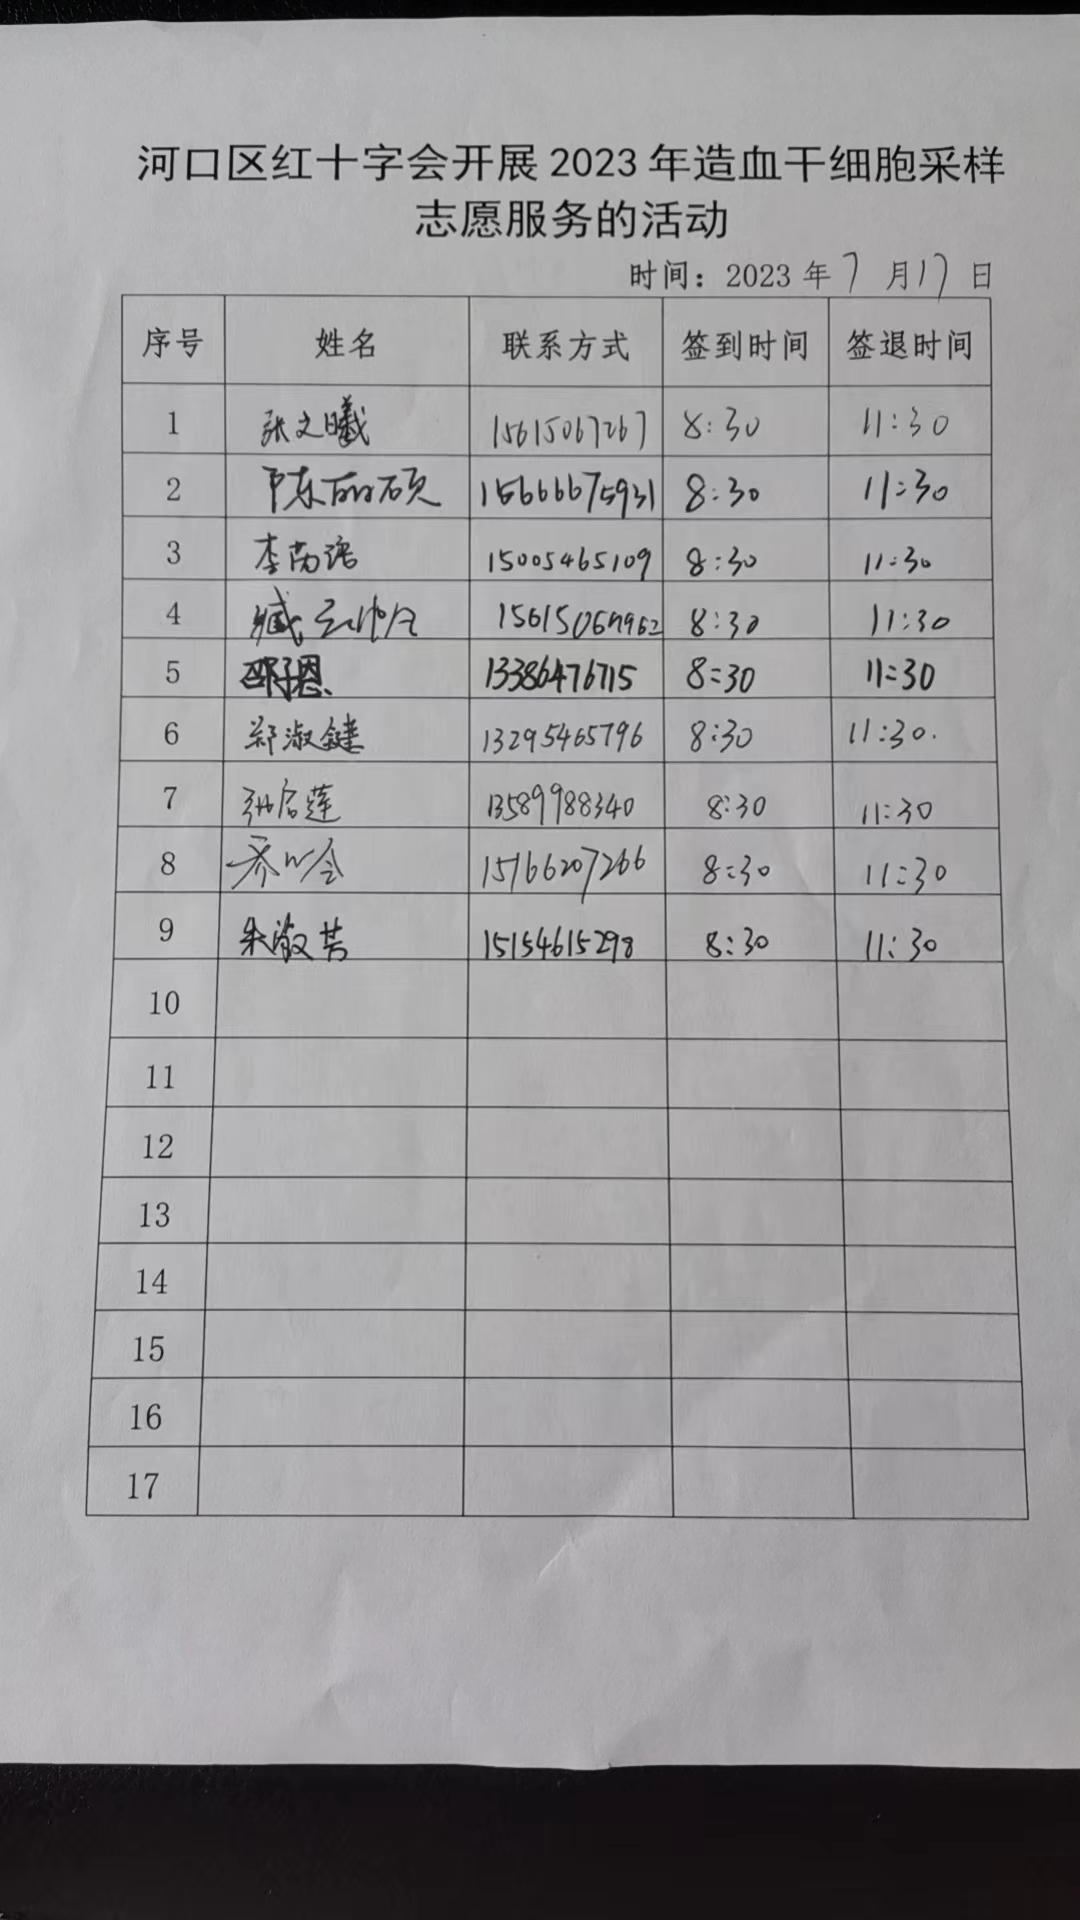 河口区红十字会开展 2023 年造血干细胞采样
志愿服务的活动
时间：2023 年 7 月 17 日
序号 姓名 联系方式 签到时间 签退时间
1 张文曦 15615067267 8:30 11:30
2 陈丽硕 15666675931 8:30 11:30
3 李雨诺 15005465109 8:30 11:30
4 臧 8:30 11:30
5 邵子恩 13386476715 8:30 11:30
6 郑淑键 13295465796 8:30 11:30.
7 莲 13589988340 8:30 11:30
8 15166207266 8:30 11:30
9 朱淑芳 15154615298 8:30 11:30
10
11
12
13
14
15
16
17